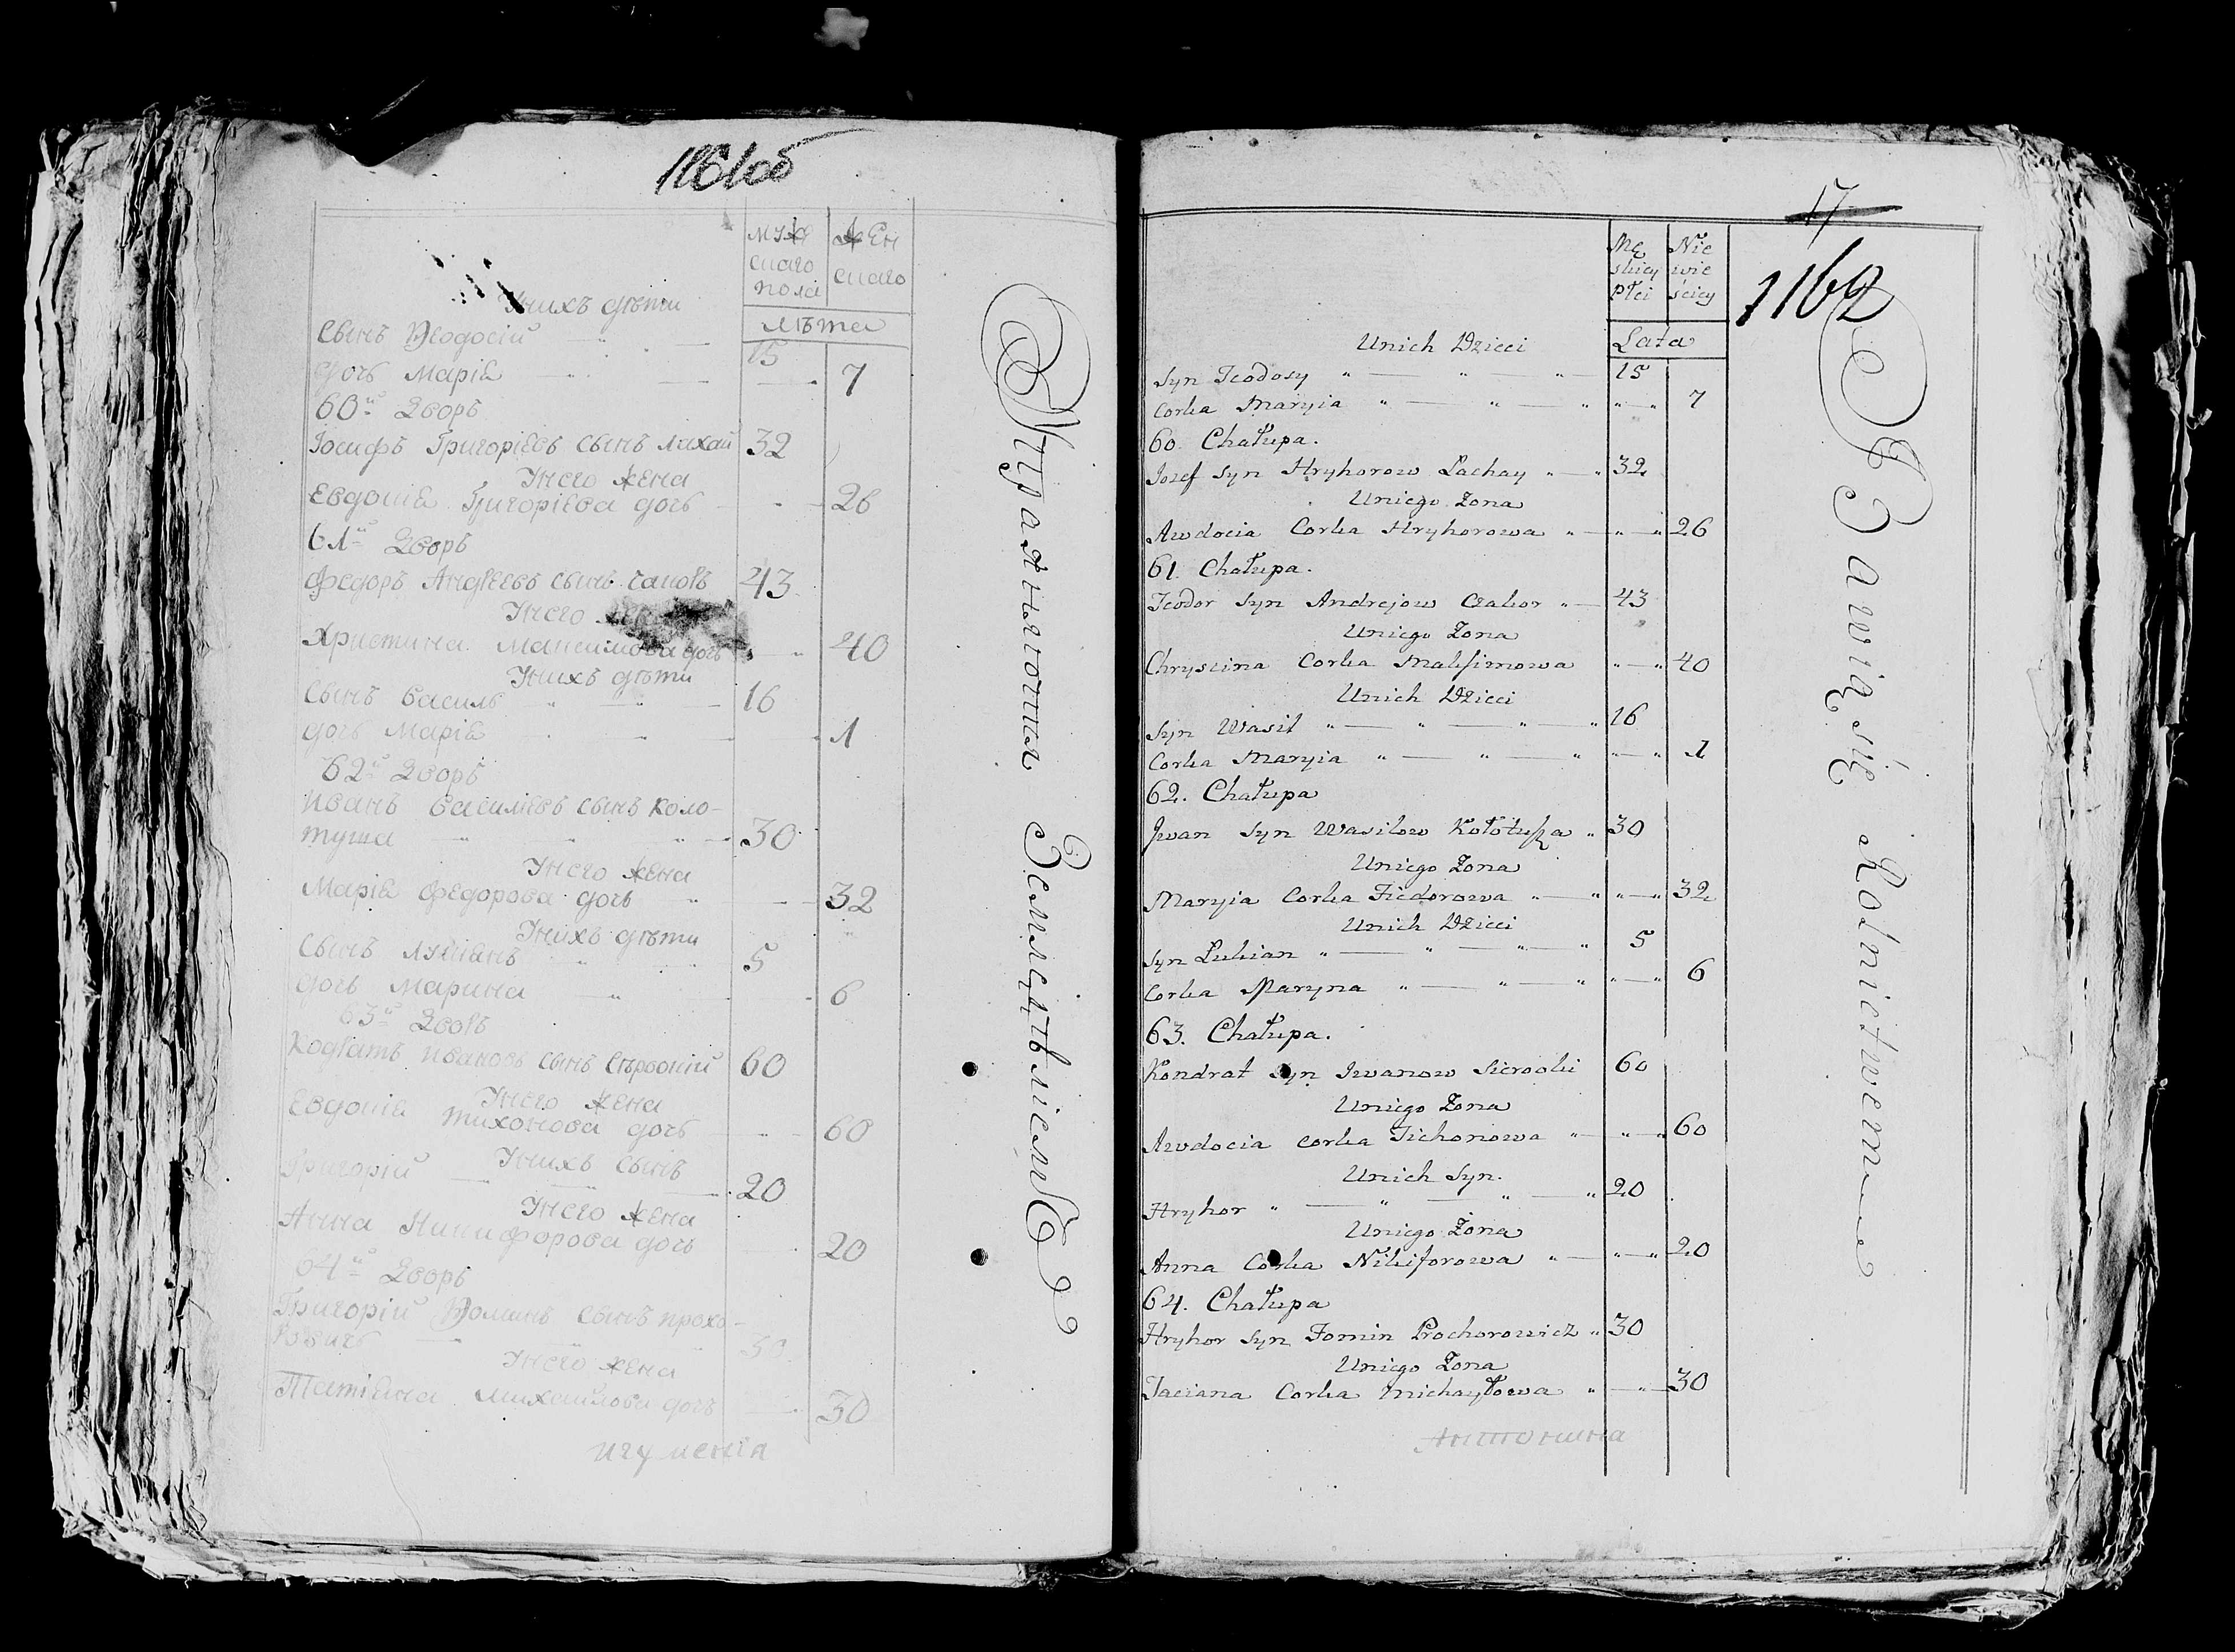 1161об
муж ское пола
жен ского
лѣта
У нихъ дѣти
Сынъ Ѳеодосій 15
дочь Марія 7
60й Дворъ
Іосифъ Григорієвъ сынъ Лахай 32
У него жена
Евдокія Григорієва дочь 26
61й Дворъ
Федоръ Андреевъ сынъ 43
У него жена
Христина Максимова дочь 40
У нихъ дѣти
Сынъ Василь 16
дочь Марія 1
62й Дворъ
Иванъ Василиевъ сынъ Коло-
туша 30
У него жена
Марія Федорова дочь 32
У нихъ дѣти
Сынъ Лукіанъ 5
дочь Марина 6
63й Дворъ
Кодратъ Ивановъ сынъ 60
У него жена
Евдокія Тихонова дочь 60
У нихъ сынъ
Григорій 20
У него жена
Анна Никифорова дочь 20
64й Дворъ
Григорій Ѳоминъ сынъ Прохо-
ровичъ 30
У него жена
Татіана Михайлова дочь 30
игуменія
Упражняются Земледѣліемъ
17
1162
Mę skiey płci
Nie wie ściey
Lata
Unich Dzieci
Syn Teodosy 15
Corka Maryia 7
60. Chałupa.
Jozef Syn Hryhorow Lachay 32
Uniego Zona
Awdocia Corka Hryhorowa 26
61. Chałupa.
Teodor Syn Andrejow Czakor 43
Uniego Zona
Chrystina Corka Maksimowa 40
Unich Dzieci
Syn Wasil 16
Corka Maryia 1
62. Chałupa
Jwan Syn Wasilow Kołotuszka 30
Uniego Zona
Maryia Corka Fiedorowa 32
Unich Dzieci
Syn Lukian 5
Corka Maryna 6
63. Chałupa.
Kondrat Syn Iwanow Sierooki 60
Uniego Zona
Awdocia corka Tichonowa 60
Unich Syn.
Hryhor 20
Uniego Zona
Anna Corka Nikiforowa 20
64. Chałupa
Hryhor Syn Fomin Prochorowicz 30
Uniego Zona
Taciana Corka Michayłowa 30
Антонина
Bawią się Rolnictwem